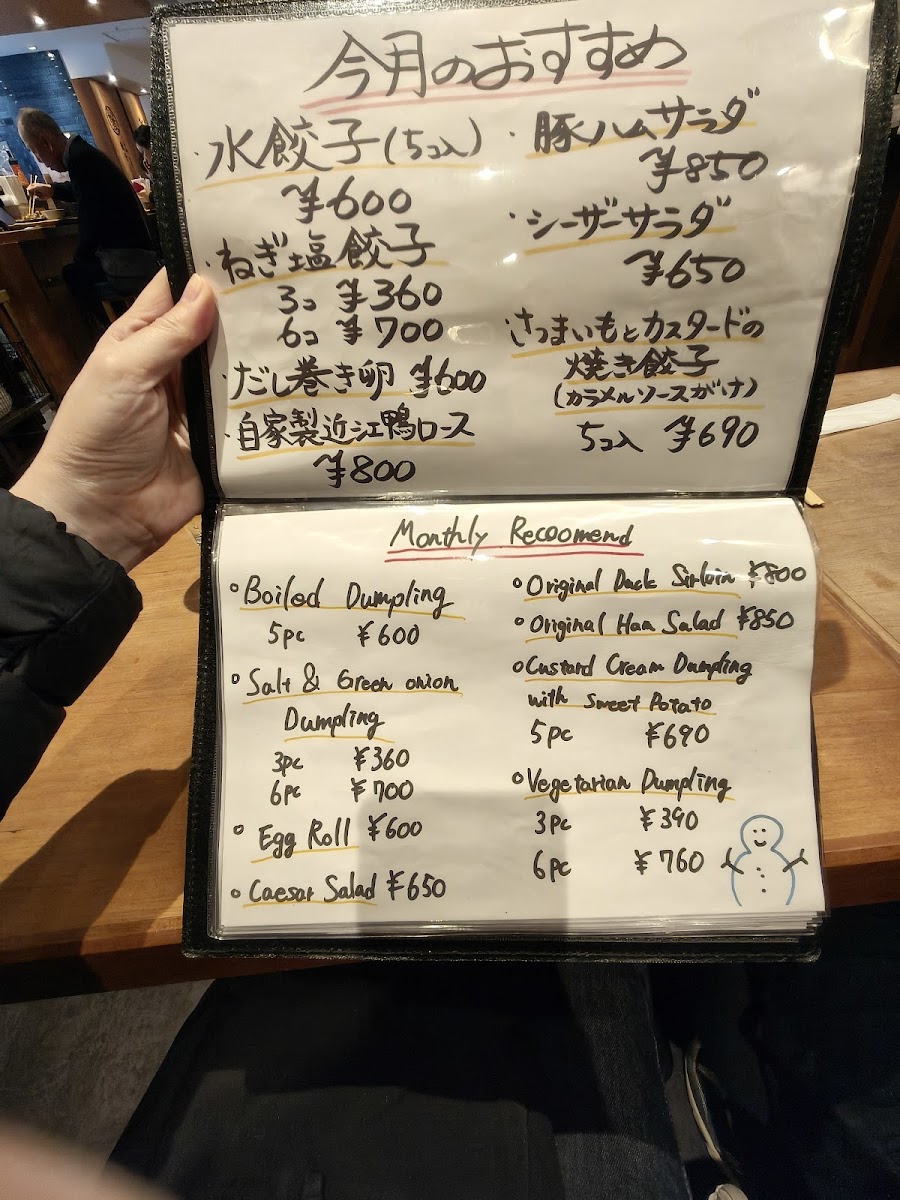 今月のおすすめ
・水餃子(5コ入)
¥600
・ねぎ塩餃子
3コ ¥360
6コ ¥700
・だし巻き卵 ¥600
・自家製近江鴨ロース
¥800
・豚ハムサラダ
¥850
・シーザーサラダ
¥650
・さつまいもとカスタードの
焼き餃子
(カラメルソースがけ)
5コ入 ¥690
Monthly Recoomend
○Boiled Dumpling
5pc ¥600
○Salt & Green onion
Dumpling
3pc ¥360
6pc ¥700
○Egg Roll ¥600
○Caesar Salad ¥650
○Original Duck Sirloin ¥800
○Original Ham Salad ¥850
○Custard Cream Dumpling
with Sweet Potato
5pc ¥690
○Vegetarian Dumpling
3pc ¥390
6pc ¥760